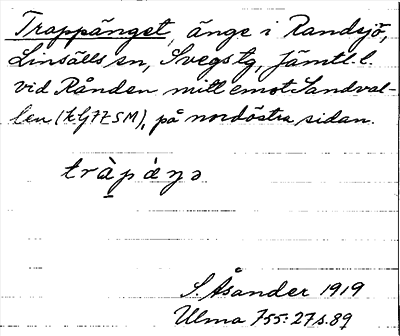 Trappänget, änge i Randsjö,
Linsälls sn, Svegs tg, Jämtl. l.
vid Rånden mitt emot Sandval-
len ( SM), på nordöstra sidan.
tràpáŋə
S. Åsander 1919
Ulma 755:27 s. 89